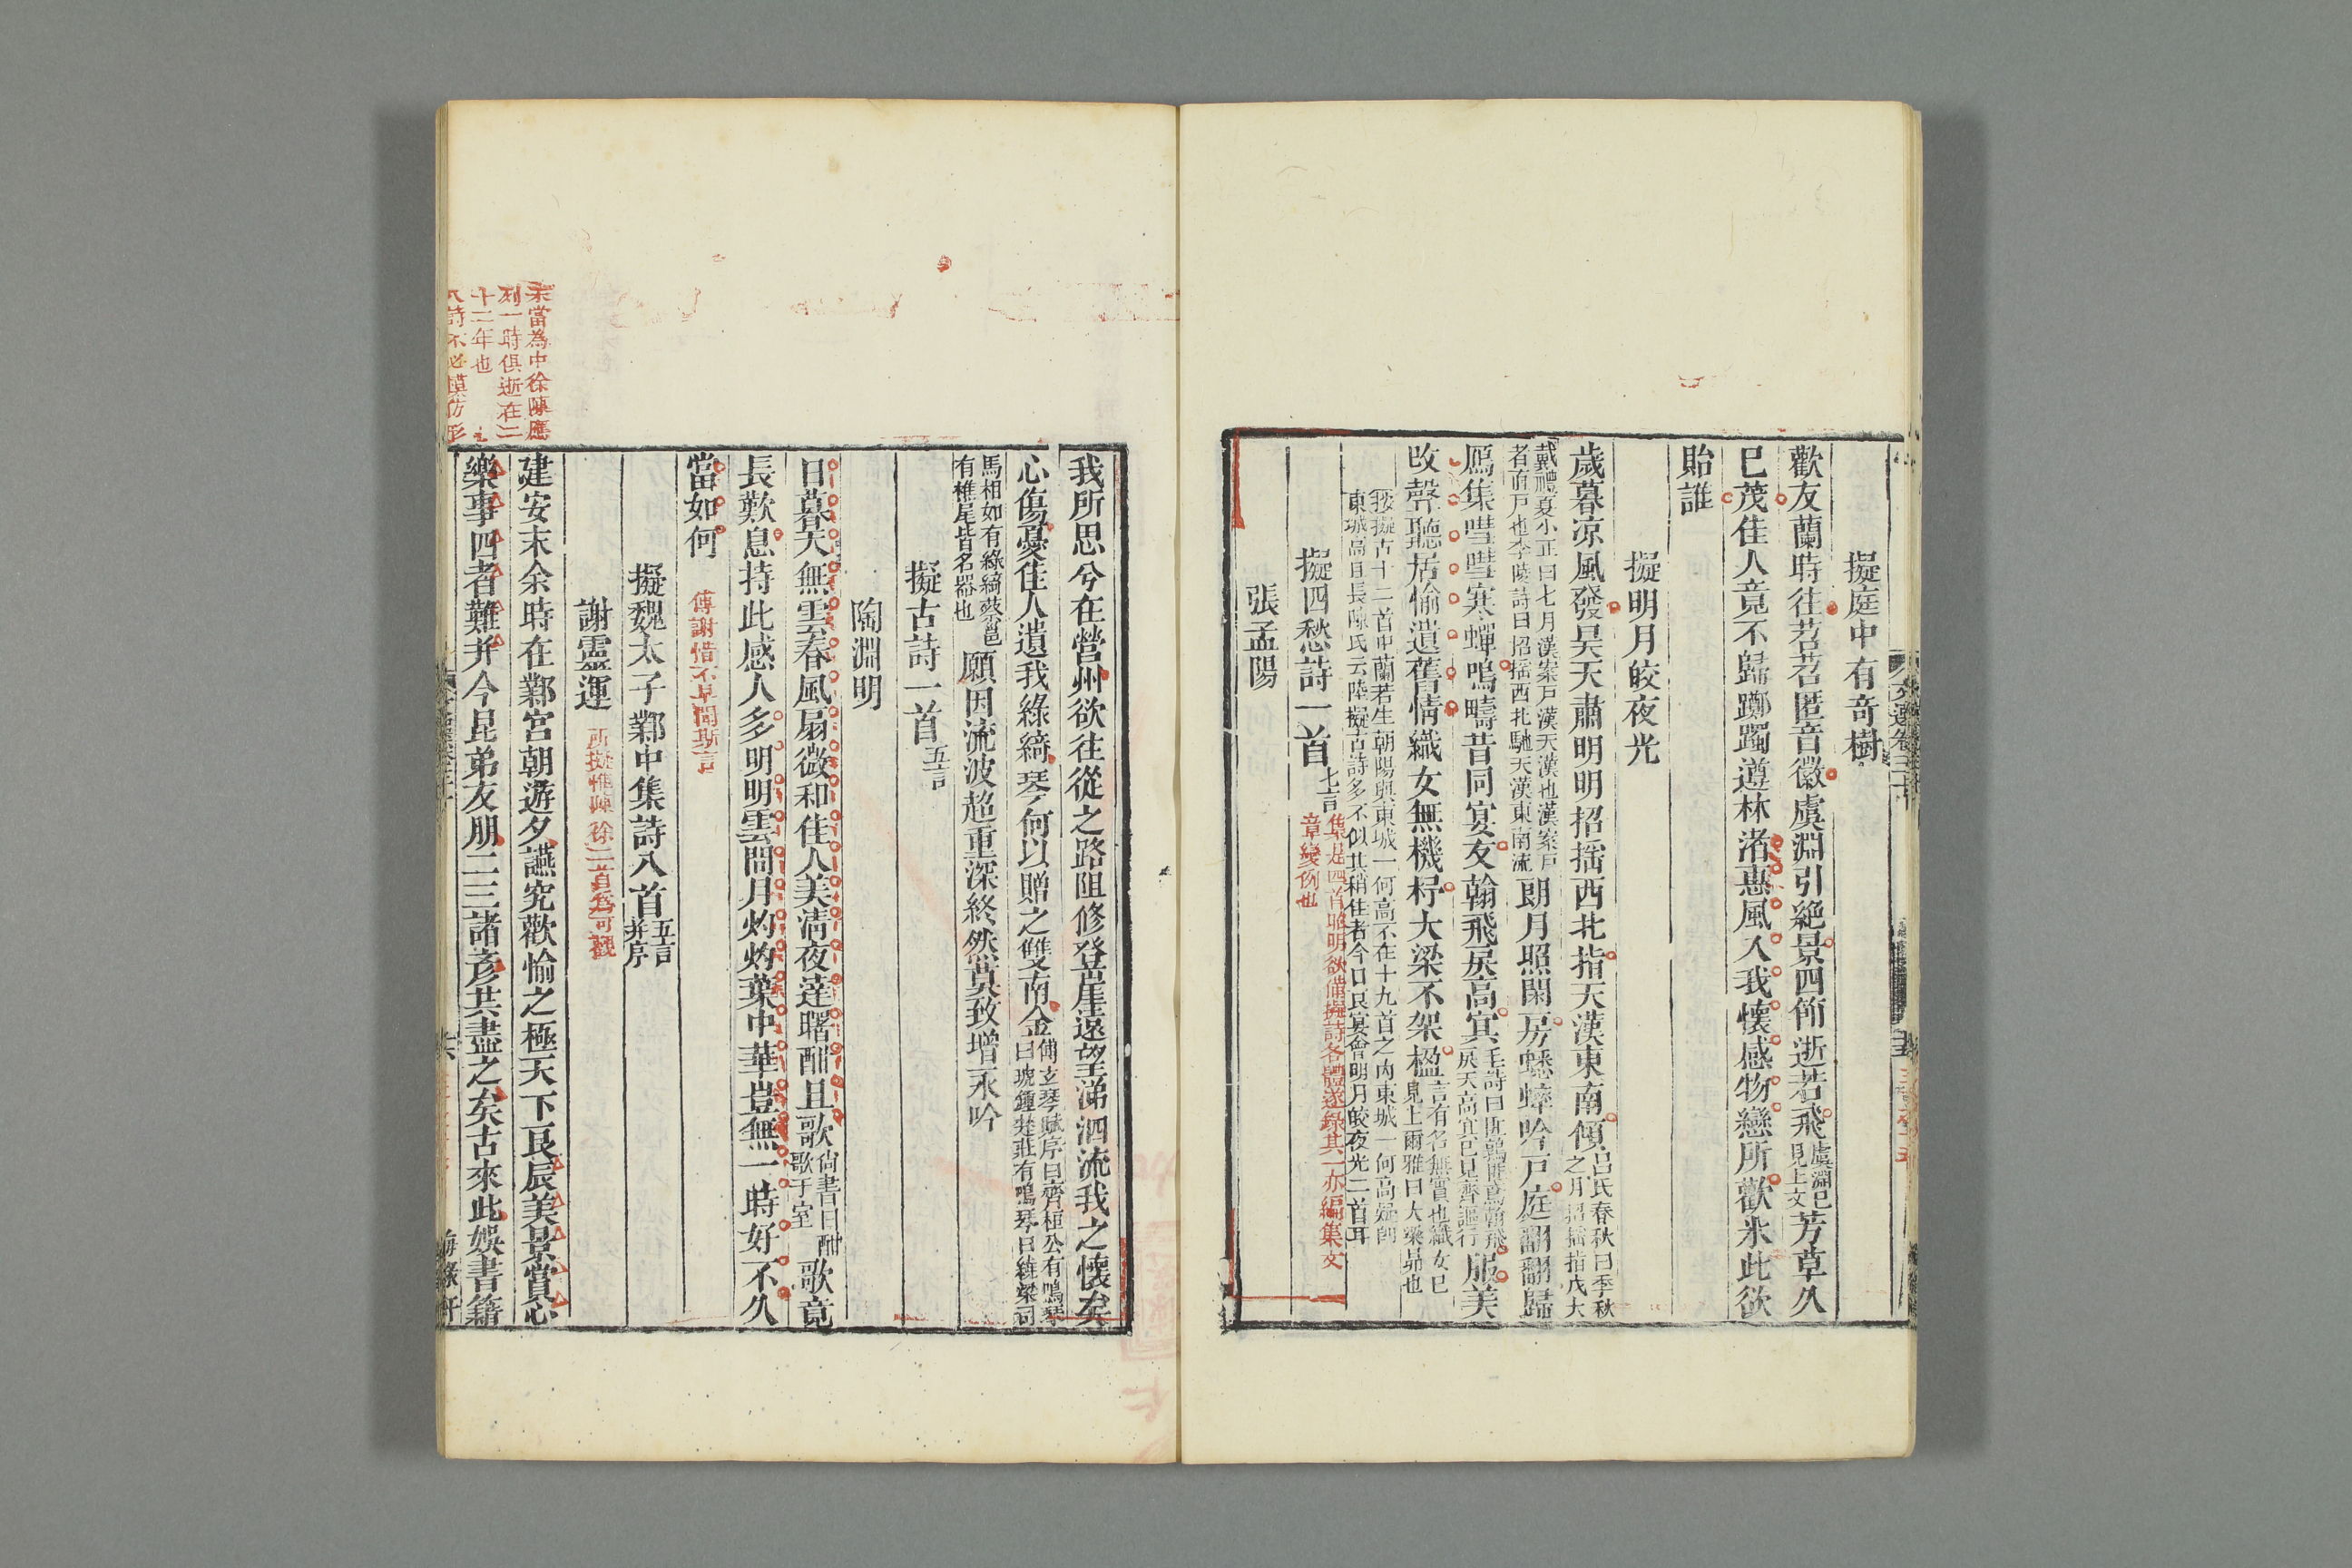 擬庭中有竒樹
歡友蘭時往苕苕匿音徽虞淵引絶景四節逝若飛虞淵已見上文芳草久
已茂佳人竟不歸躑躅遵林渚惠風入我懷感物戀所歡采此欲
貽誰
擬明月皎夜光
歲暮凉風發昊天肅明明招揺西北指天漢東南傾吕氏春秋曰季秋之月招揺指戊大
戴禮夏小正曰七月漢案戸漢天漢也漢案戸者直戸也李陵詩曰招揺西北馳天漢東南流朗月照閑房蟋蟀吟戸庭翻翻歸
鴈集嘒嘒寒蟬鳴疇昔同宴友翰飛戾高冥毛詩曰匪鶉匪鳶翰飛戾天高冥已見齊謳行服美
改聲聽居愉遺舊情織女無機杼大梁不架楹言有名無實也織女已見上爾雅曰大梁昴也
按擬古十二首中蘭若生朝陽與東城一何高不在十九首之内東城一何高疑卽
東城高且長陳氏云陸擬古詩多不似其稍佳者今日良宴會明月皎夜光二首耳
擬四愁詩一首七言
集是四首昭明欲備擬詩各體遂錄其一亦編集文
章變例也
張孟陽
我所思兮在營州欲往從之路阻修登崖遠望涕泗流我之懷矣
心傷憂佳人遺我綠綺琴何以贈之雙南金傅玄琴賦序曰齊桓公有鳴琴曰號鍾楚莊有鳴琴曰繞梁司
馬相如有綠綺蔡邕有樵尾皆名器也願因流波超重深終然莫致增永吟
擬古詩一首五言
陶淵明
日暮天無雲春風扇微和佳人美淸夜達曙酣且歌尚書曰酣歌于室歌竟
長歎息持此感人多明明雲間月灼灼葉中華豈無一時好不久
當如何
傅謝惜不早聞斯言
擬魏太子鄴中集詩八首五言并序
謝靈運
所擬惟陳徐二首爲可觀
建安末余時在鄴宮朝遊夕讌究歡愉之極天下良辰美景賞心
樂事四者難并今昆弟友朋二三諸彦共盡之矣古來此娱書籍
末當為中徐陳應
劉一時俱逝在二
十二年也
八詩不必模仿形